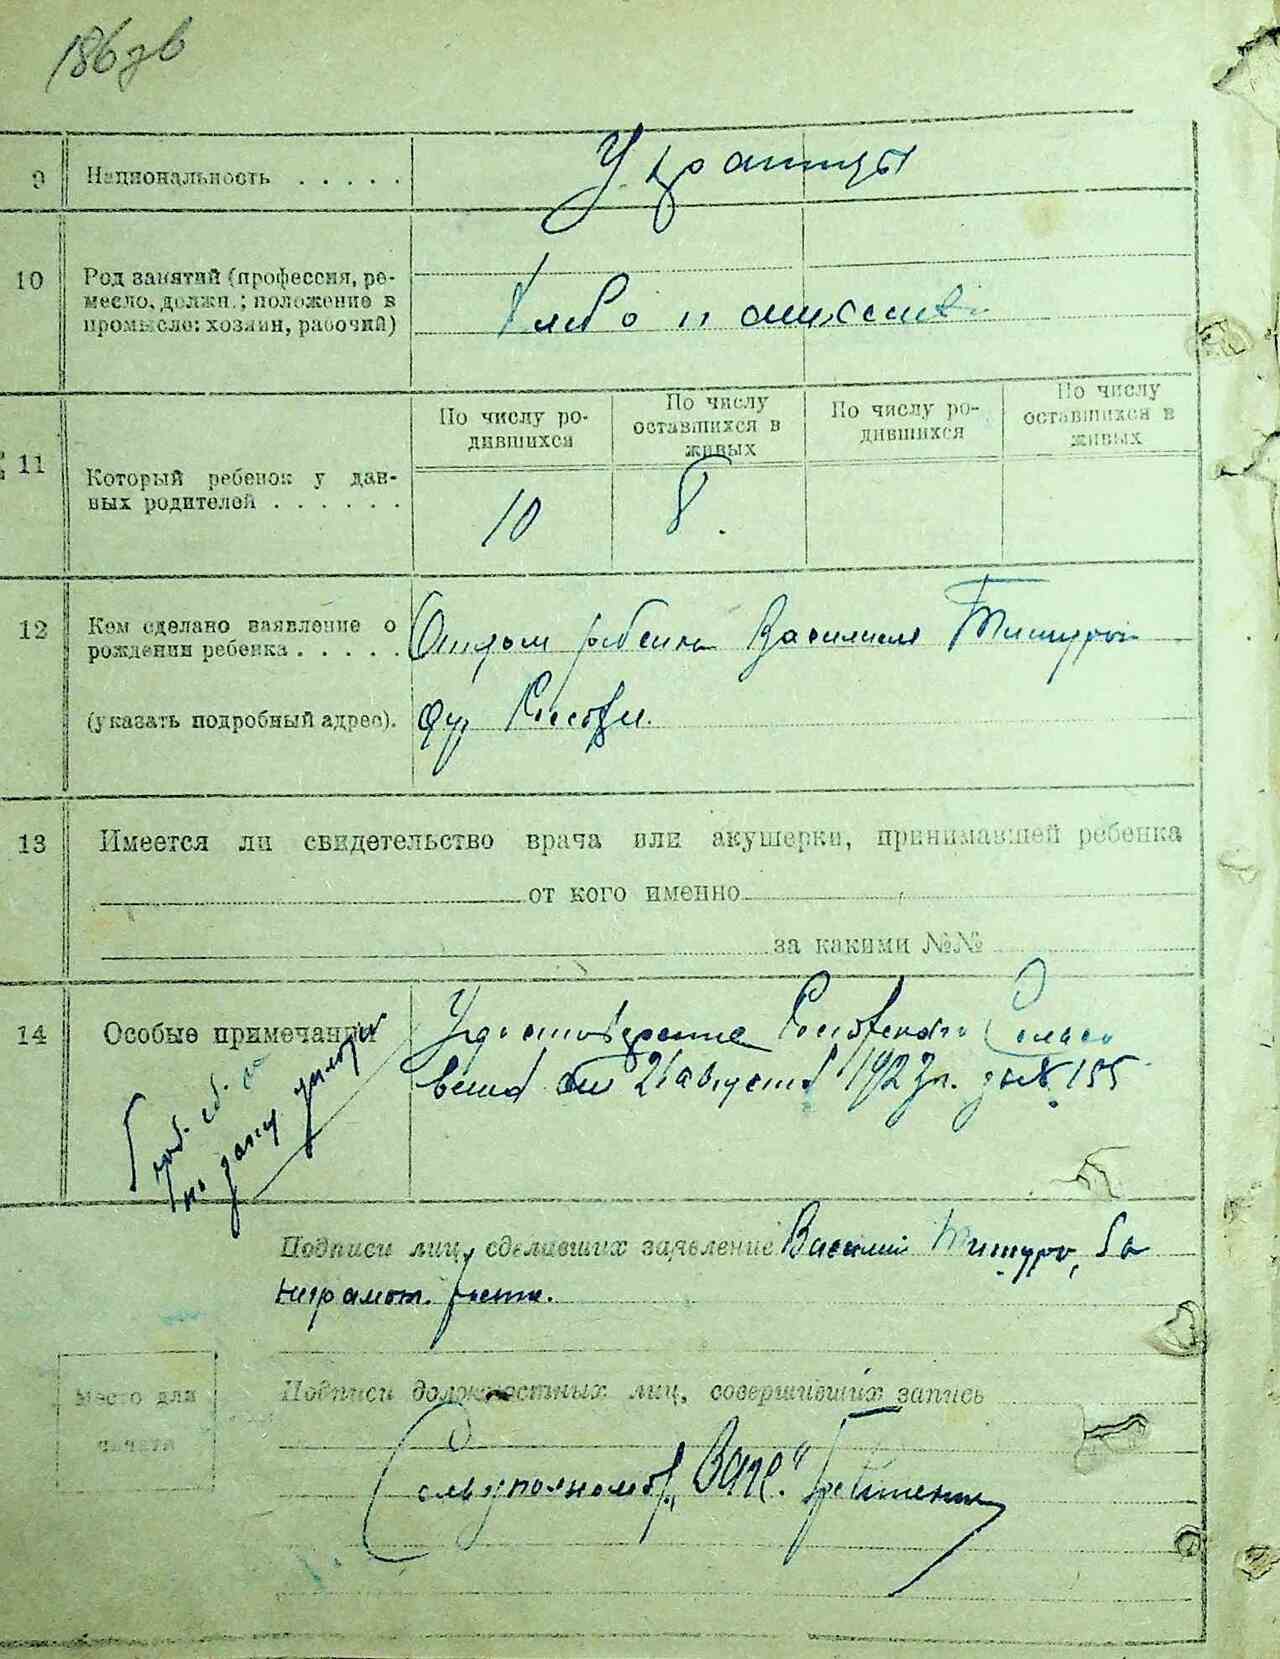 186
9 Национальность . . . . .
Украинцы
10 Род занятий (профессия, ре-
месло, должн.; положение в
промысле: хозяин, рабочий)
Хлебо
11 Который ребенок у дан-
ных родителей . . . . . .
По числу ро-
дившихся
По числу
оставшихся в
живых
По числу ро-
дившихся
По числу
оставшихся в
живых
10 8.
12 Кем сделано заявление о
рождении ребенка . . . . .
(указать подробный адрес).
Отцом ребенка Василием
13 Имеется ли свидетельство врача или акушерки, принимавшей ребенка
от кого именно
за какими №№
14 Особые примечания
Удостоверение
от 21 августа 1923 г. за № 155
по
Подписи лиц, сделавших заявление Василий Титуро, за
неграмот.
Место для
печати
Подписи должностных лиц, совершивших запись
Сельуполномоч. „ЗАГС."